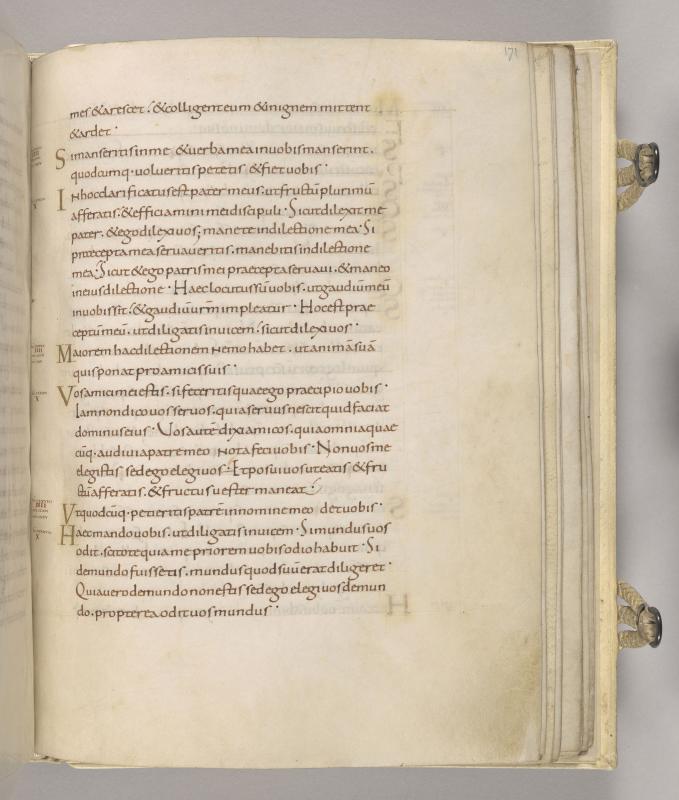 171
mes &arescet. &colligenteum &inignem mittent
&ardet.
Simanseritisinme &uerbameainuobismanserint.
quodcumq. uolueritispetetis &fietuobis.
Inhocclarificatusestpater meus. utfructū plurimū
afferatis. &efficiaminimeidiscipuli. Sicutdilexitme
pater. &egodilexiuos; maneteindilectione mea. Si
praeceptameaseruaueritis. manebitisindilectione
mea. Sicut &ego patrismei praeceptaseruaui. &maneo
ineiusdilectione. Haeclocutussūuobis. utgaudiūmeū
inuobissit. &gaudiūurm̄impleatur. Hocestprae
ceptūmeū. utdiligatisinuicem. sicutdilexiuos.
Maiorem hacdilectionem nemohabet. utanimāsuā
quisponat proamicissuis.
Vosamicimeiestis. sifeceritisquaeego praecipiouobis.
Iamnondicouosseruos. quiaseruusnescitquidfaciat
dominuseius. Uosautē dixiamicos. quiaomniaquae
cūq. audiuiapatremeo notafeciuobis. Nonuosme
elegistis sedegoelegiuos. Etposuiuosuteatis &fru
ctūafferatis. &fructusuester maneat.
Vtquodcūq. petieritispatrēinnominemeo detuobis.
Haecmandouobis. utdiligatisinuicem. Simundusuos
odit. scitotequiamepriorem uobisodiohabuit. Si
demundofuissetis. mundusquodsuūeratdiligeret.
Quiauerodemundononestissedegoelegiuosdemun
do. propterea odituosmundus.